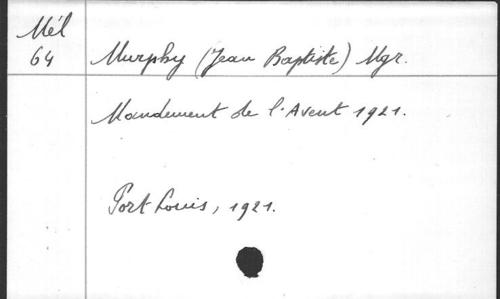 Mél
64
Murphy (Jean Baptiste) Mgr.
Mandement de l'Avent 1921.
Port Louis, 1921.